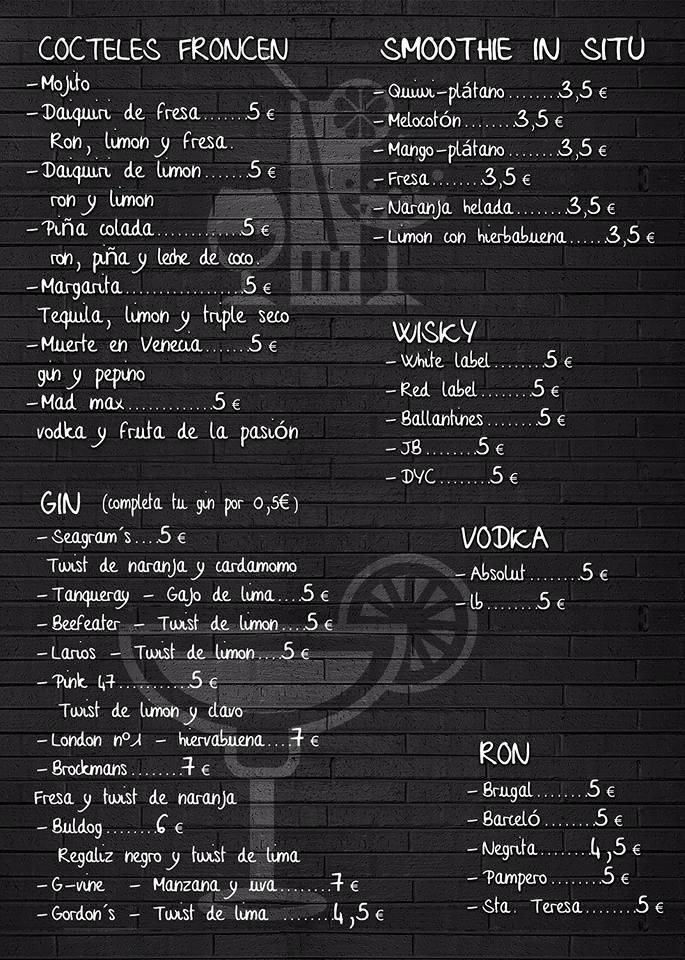 COCTELES FRONCEN
-Mojito
-Daiquiri de fresa.......5 €
Ron, limon y fresa.
-Daiquiri de limon.......5 €
ron y limon
-Piña colada.............5 €
ron, piña y leche de coco.
-Margarita..................5 €
Tequila, limon y triple seco
-Muerte en Venecia.......5 €
gin y pepino
-Mad max.............5 €
vodka y fruta de la pasión
GIN (completa tu gin por 0,5€)
-Seagram´s....5 €
Twist de naranja y cardamomo
-Tanqueray - Gajo de lima....5 €
-Beefeater - Twist de limon....5 €
-Larios - Twist de limon....5 €
-Pink 47...........5 €
Twist de limon y clavo
-London nº1 - hiervabuena....7 €
-Brockmans........7 €
Fresa y twist de naranja
-Buldog.......6 €
Regaliz negro y twist de lima
-G-vine - Manzana y uva.......7 €
-Gordon´s - Twist de lima .......4,5 €
SMOOTHIE IN SITU
-Quiwi-plátano........3,5 €
-Melocotón.......3,5 €
-Mango-plátano........3,5 €
-Fresa.......3,5 €
-Naranja helada.......3,5 €
-Limon con hierbabuena......3,5 €
WISKY
-White label.........5 €
-Red label.........5 €
-Ballantines.........5 €
-JB........5 €
-DYC........5 €
VODKA
-Absolut.........5 €
-lb.........5 €
RON
-Brugal.........5 €
-Barceló.........5 €
-Negrita.........4,5 €
-Pampero.........5 €
-Sta. Teresa.........5 €